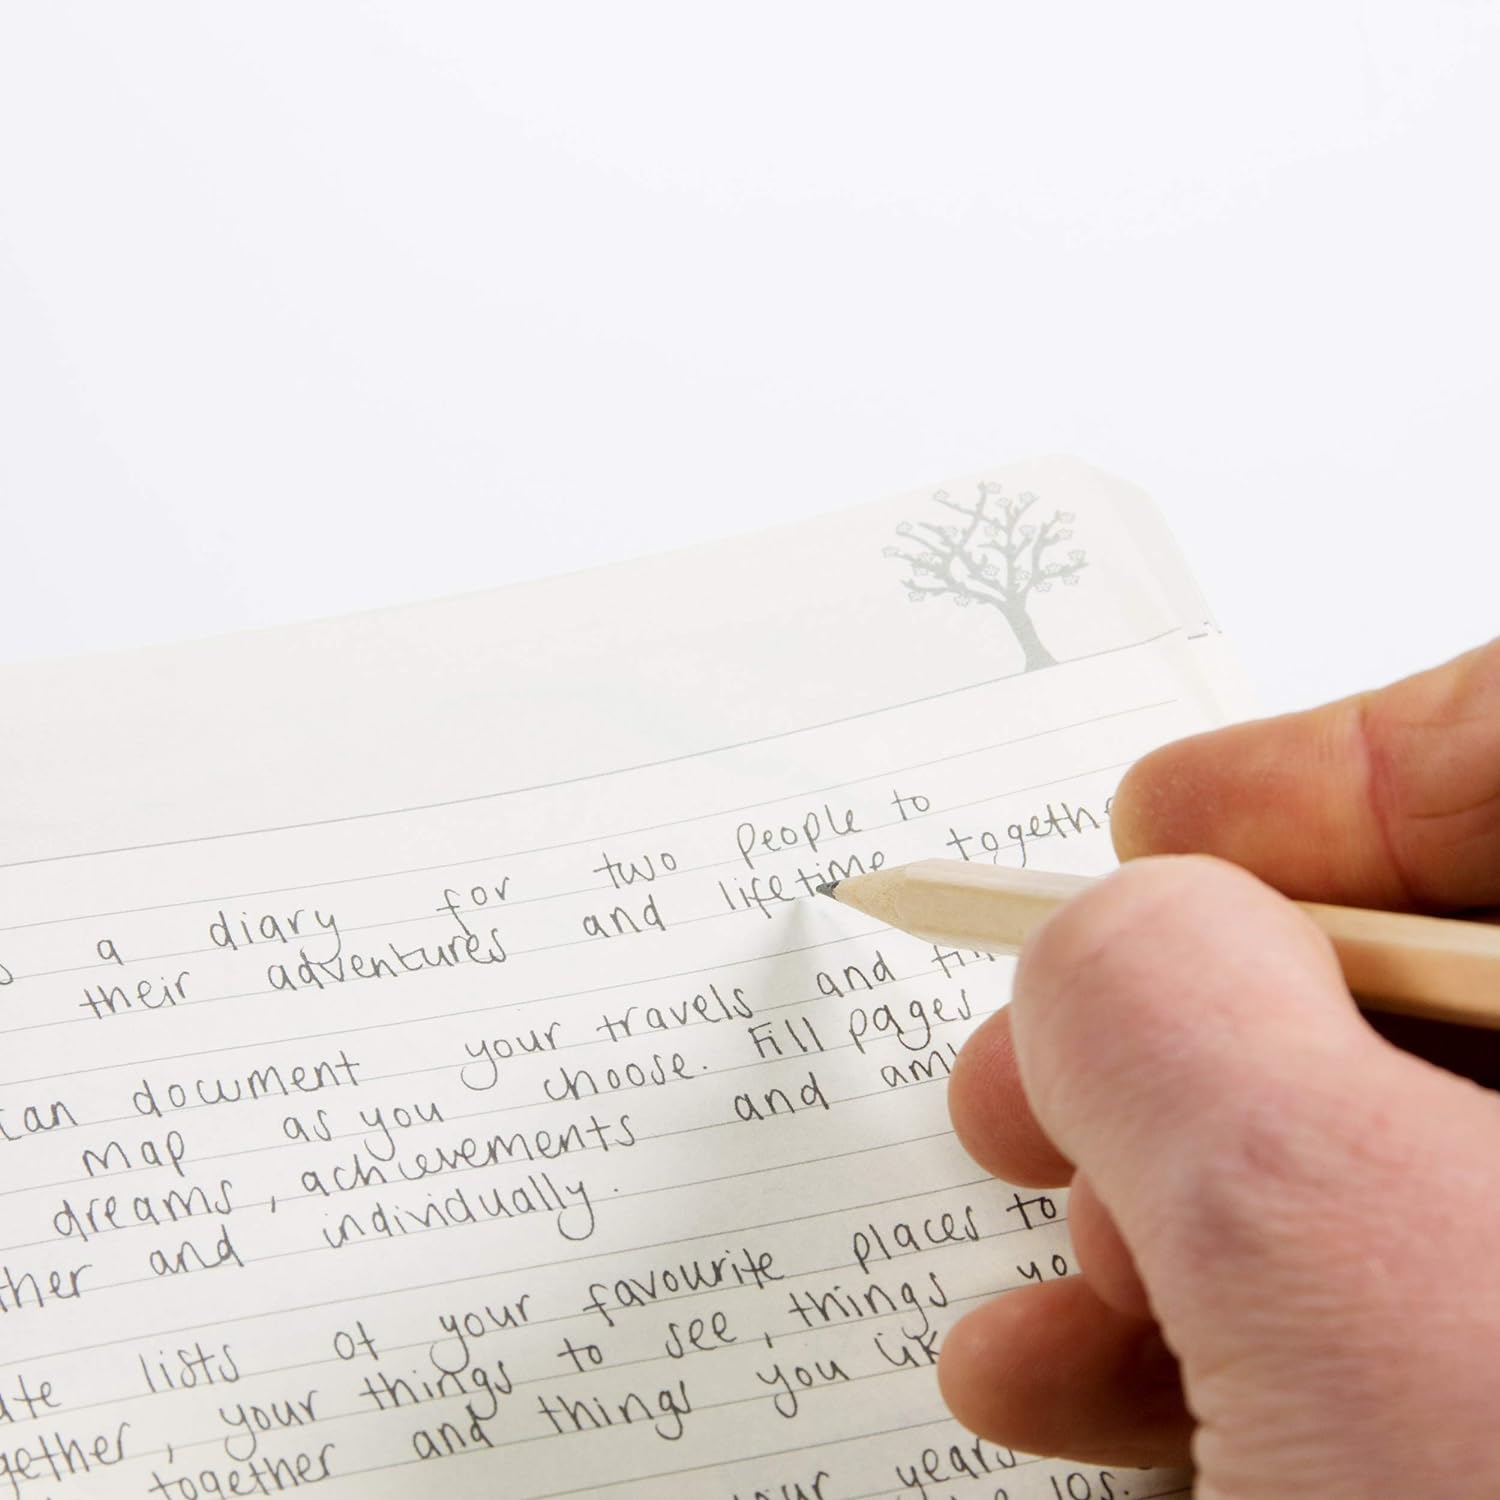 a diary for two people to
their adventures and lifetime togethe
can document your travels and
map as you choose. Fill pages
dreams, achievements and
ther and individually.
lists of your favourite places to
gether, your things to see, things yo
together and things you lik
years